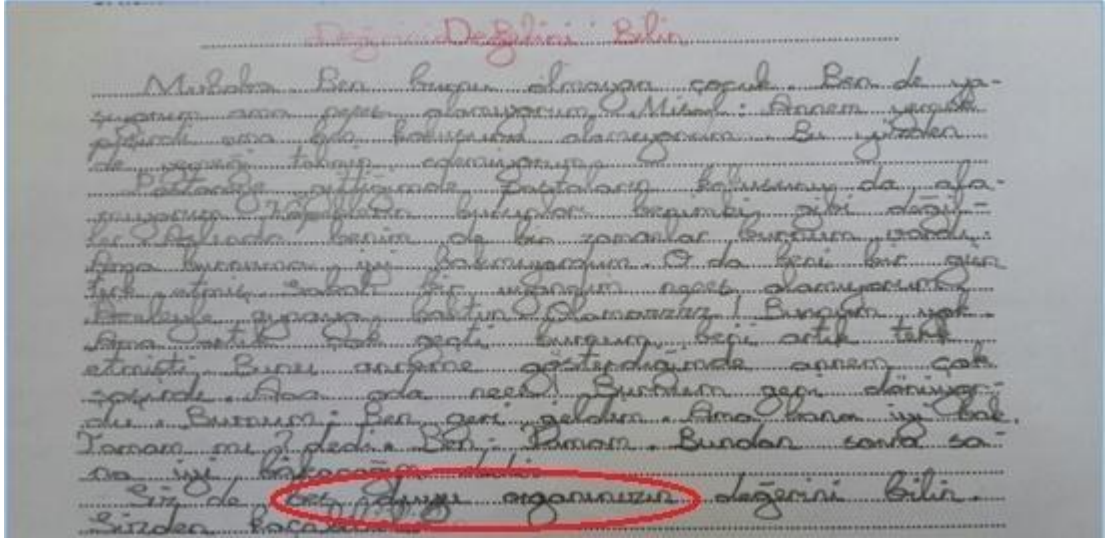 Değerini Bilin
Merhaba. Ben burnu olmayan çocuk. Ben de ya-
şıyorum ama nefes alamıyorum. Misal: Annem yemek
pişirdi ama ben kokusunu alamıyorum. Bu yüzden
de yemeği tahmin edemiyorum.
Pastaneye gittiğimde pastaların kokusunu da ala-
mıyorum. Köpeklerin burunları benimki gibi değil-
dir. Aslında benim de bir zamanlar burnum vardı.
Ama burnuma iyi bakmıyordum. O da beni bir gün
terk etmiş. Sabah bir uyandım nefes alamıyorum.
aynaya baktım. Olamazzzz! Burnum yok.
Ama artık çok geçti burnum beni artık terk
etmişti. Bunu anneme gösterdiğimde annem çok
şaşırdı. Aaa o da nesi! Burnum geri dönüyor-
du. Burnum: Ben geri geldim. Ama bana iyi bak.
Tamam mı? dedi. Ben: Tamam. Bundan sonra sa-
na iyi bakacağım dedim.
Siz de beş duyu organınızın değerini bilin.
Sizden